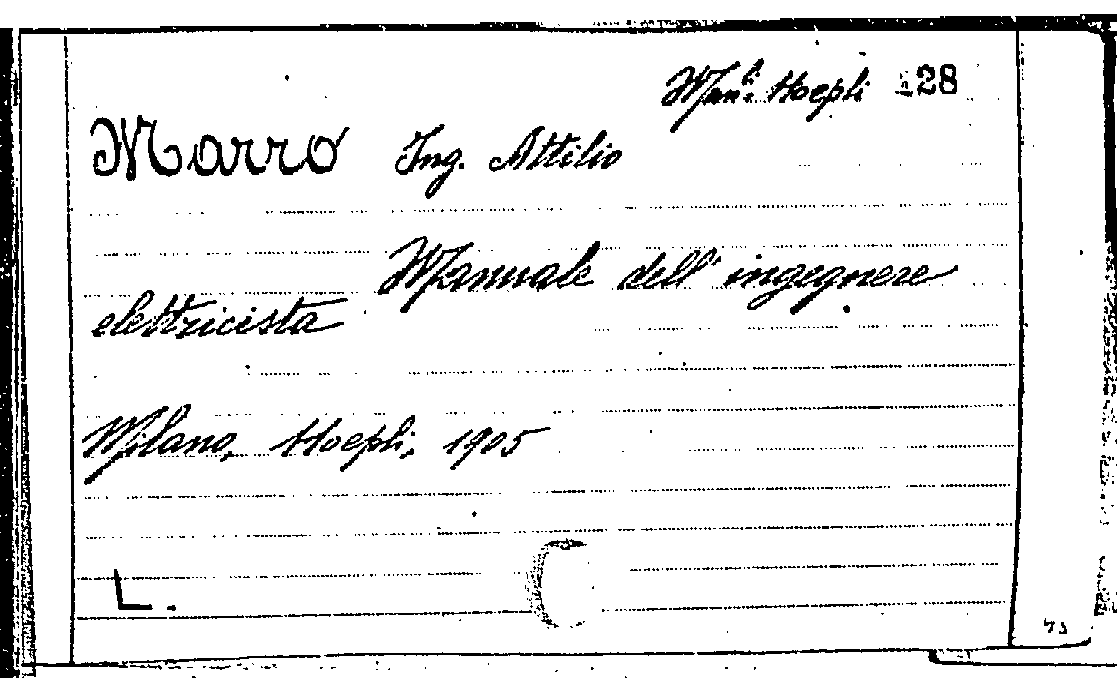 Man.li Hoepli 128
Marro Ing. Attilio
Manuale dell'ingegnere
elettricista
Milano, Hoepli, 1905
L.